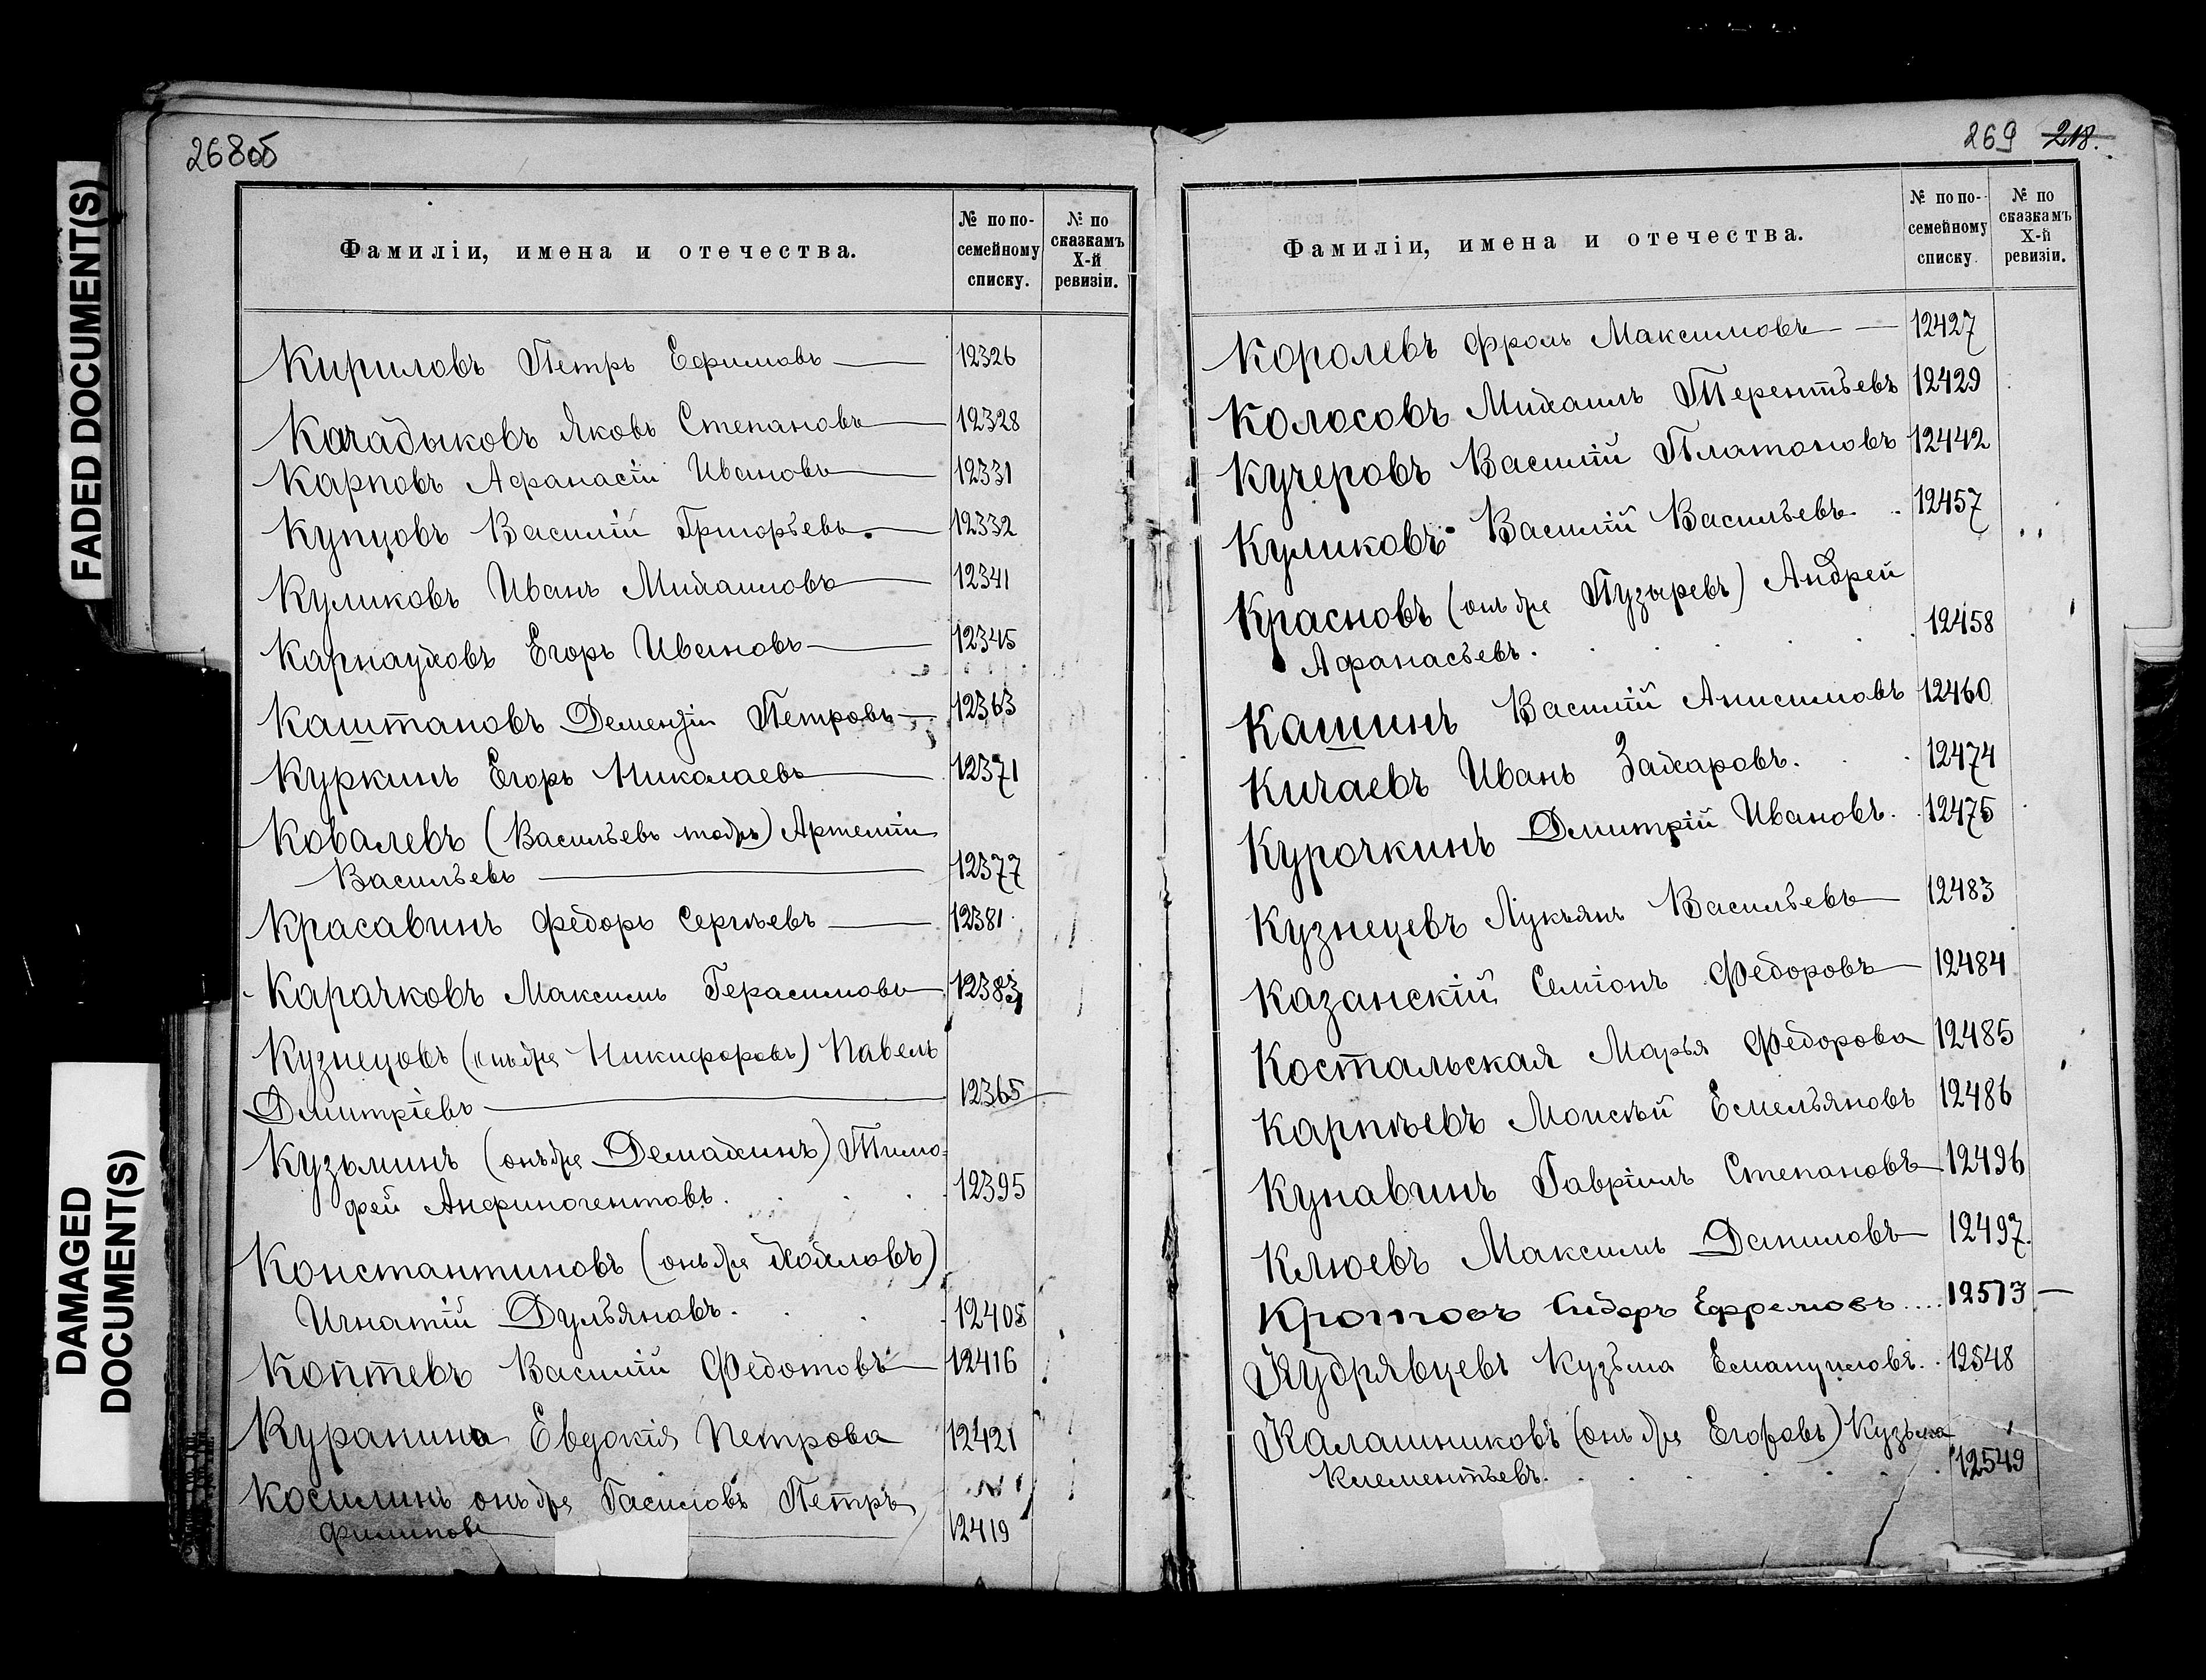 268об
Фамиліи, имена и отечества.
№ по по-
семейному
списку.
№ по
сказкамъ
X-й
ревизіи.
Кириловъ Петръ Ефимовъ 12326
Качадыковъ Яковъ Степановъ 12328
Карповъ Афанасій Ивановъ 12331
Купцовъ Василій Григорьевъ. 12332
Куликовъ Иванъ Михаиловъ 12341
Карнауховъ Егоръ Ивановъ 12345
Каштановъ Дементій Петровъ 12363
Куркинъ Егоръ Николаевъ 12371
Ковалевъ (Васильевъ тожъ) Артемій
Васильевъ 12377
Красавинъ Федоръ Сергѣевъ 12381
Карачковъ Максимъ Герасимовъ 12383
Кузнецовъ (онъ же Никифоровъ) Павелъ
Дмитріевъ 12365
Кузьминъ (онъ же Демахинъ) Тимо=
фей Анфиногентовъ. 12395
Константиновъ (онъ же)
Игнатій Дульяновъ. 12405
Коптевъ Василій Федотовъ 12416
Куранина Евдокія Петрова 12421
Косилинъ онъ же Гасиловъ Петръ
Филиповъ 12419
269 218.
Фамиліи, имена и отечества.
№ по по-
семейному
списку.
№ по
сказкамъ
X-й
ревизіи.
Королевъ Фролъ Максимовъ 12427
Колосовъ Михаилъ Терентьевъ 12429
Кучеровъ Василій Платоновъ 12442
Куликовъ Василій Васильевъ 12457
Красновъ (онъ же Пузыревъ) Андрей
Афанасьевъ. 12458
Кашинъ Василій Анисимовъ 12460
Кичаевъ Иванъ Захаровъ. 12474
Курочкинъ Дмитрій Ивановъ. 12475
Кузнецевъ Лукъянъ Васильевъ 12483
Казанскій Семіонъ Федоровъ 12484
Костальская Марья Федорова 12485
Карпѣевъ Моисѣй Емельяновъ 12486
Кунавинъ Гавріилъ Степановъ 12496
Клюевъ Максимъ Даниловъ 12497.
Кротовъ Сидоръ Ефремовъ.... 12513
Кудрявцевъ Кузьма Емануиловъ. 12548
Калашниковъ (онъ же Егоровъ) Кузьма
Клементьевъ. 12549
FADED DOCUMENT(S)
DAMAGED
DOCUMENT(S)